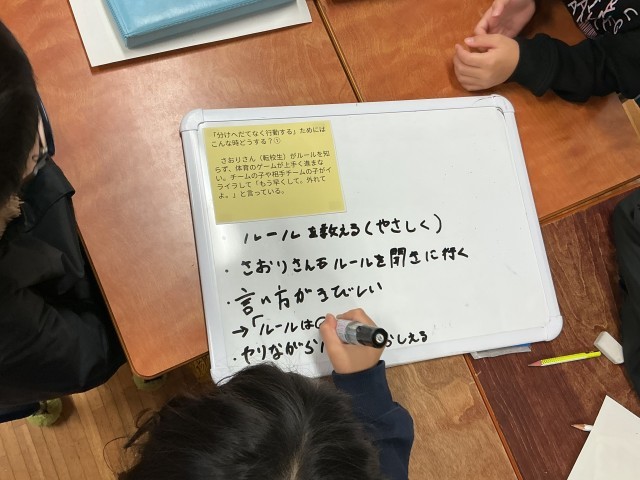 「分けへだてなく行動する」ためには
こんな時どうする?①
さおりさん(転校生)がルールを知
らず、体育のゲームが上手く進まな
い。チームの子や相手チームの子がイ
ライラして「もう早くして。外れて
よ。」と言っている。
・ルールを教える(やさしく)
・さおりさんもルールを聞きに行く
・言い方がきびしい
→「ルールは
・やりながら おしえる